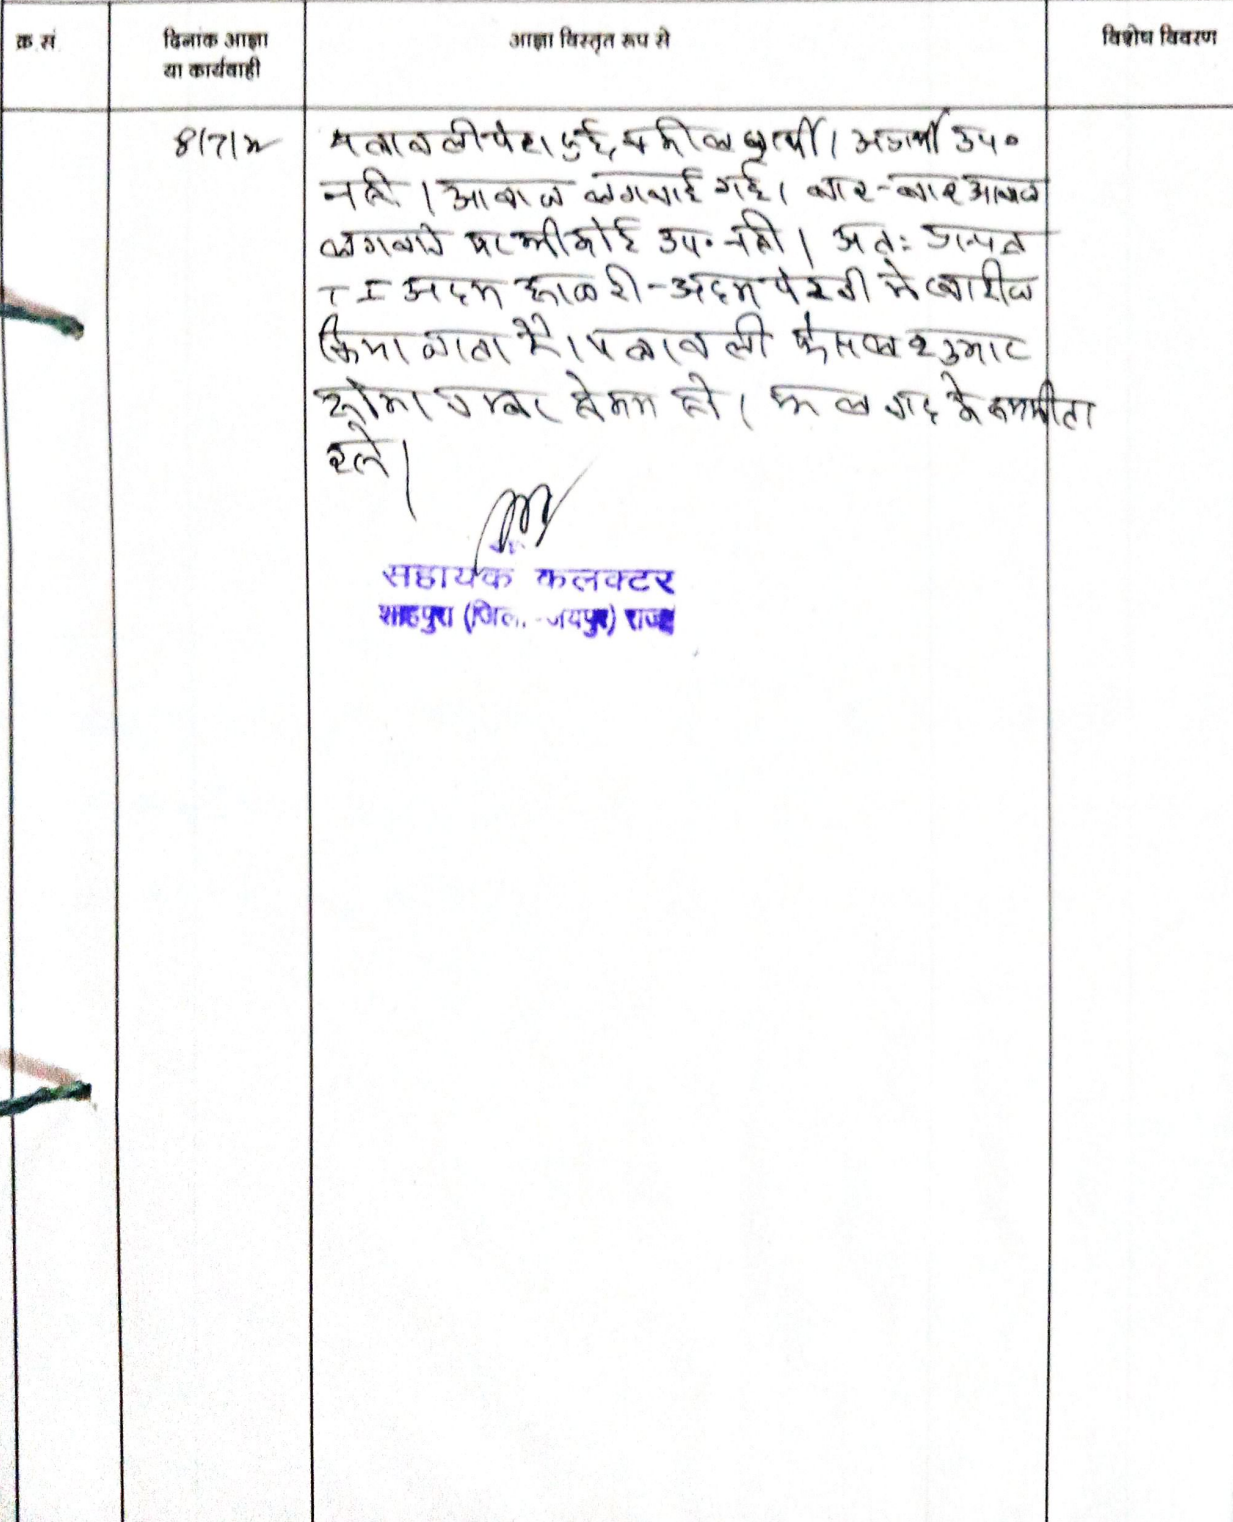 क्र.सं.
दिनांक आज्ञा
या कार्यवाही
आज्ञा विस्तृत रूप से
विशेष विवरण
8/7/
पत्रावली पेश हुई, वकील प्रार्थी / अप्रार्थी उप०
नहीं । आवाज लगवाई गई । बार-बार आवाज
लगवाने पर भी कोई उप० नहीं । अतः
अदम हाजरी-अदम पैरवी में खारीज
किया जाता है । पत्रावली फैसल शुमार
होकर नम्बर से कम हो ।
रहे ।
सहायक कलक्टर
शाहपुरा (जिला-जयपुर) राज०